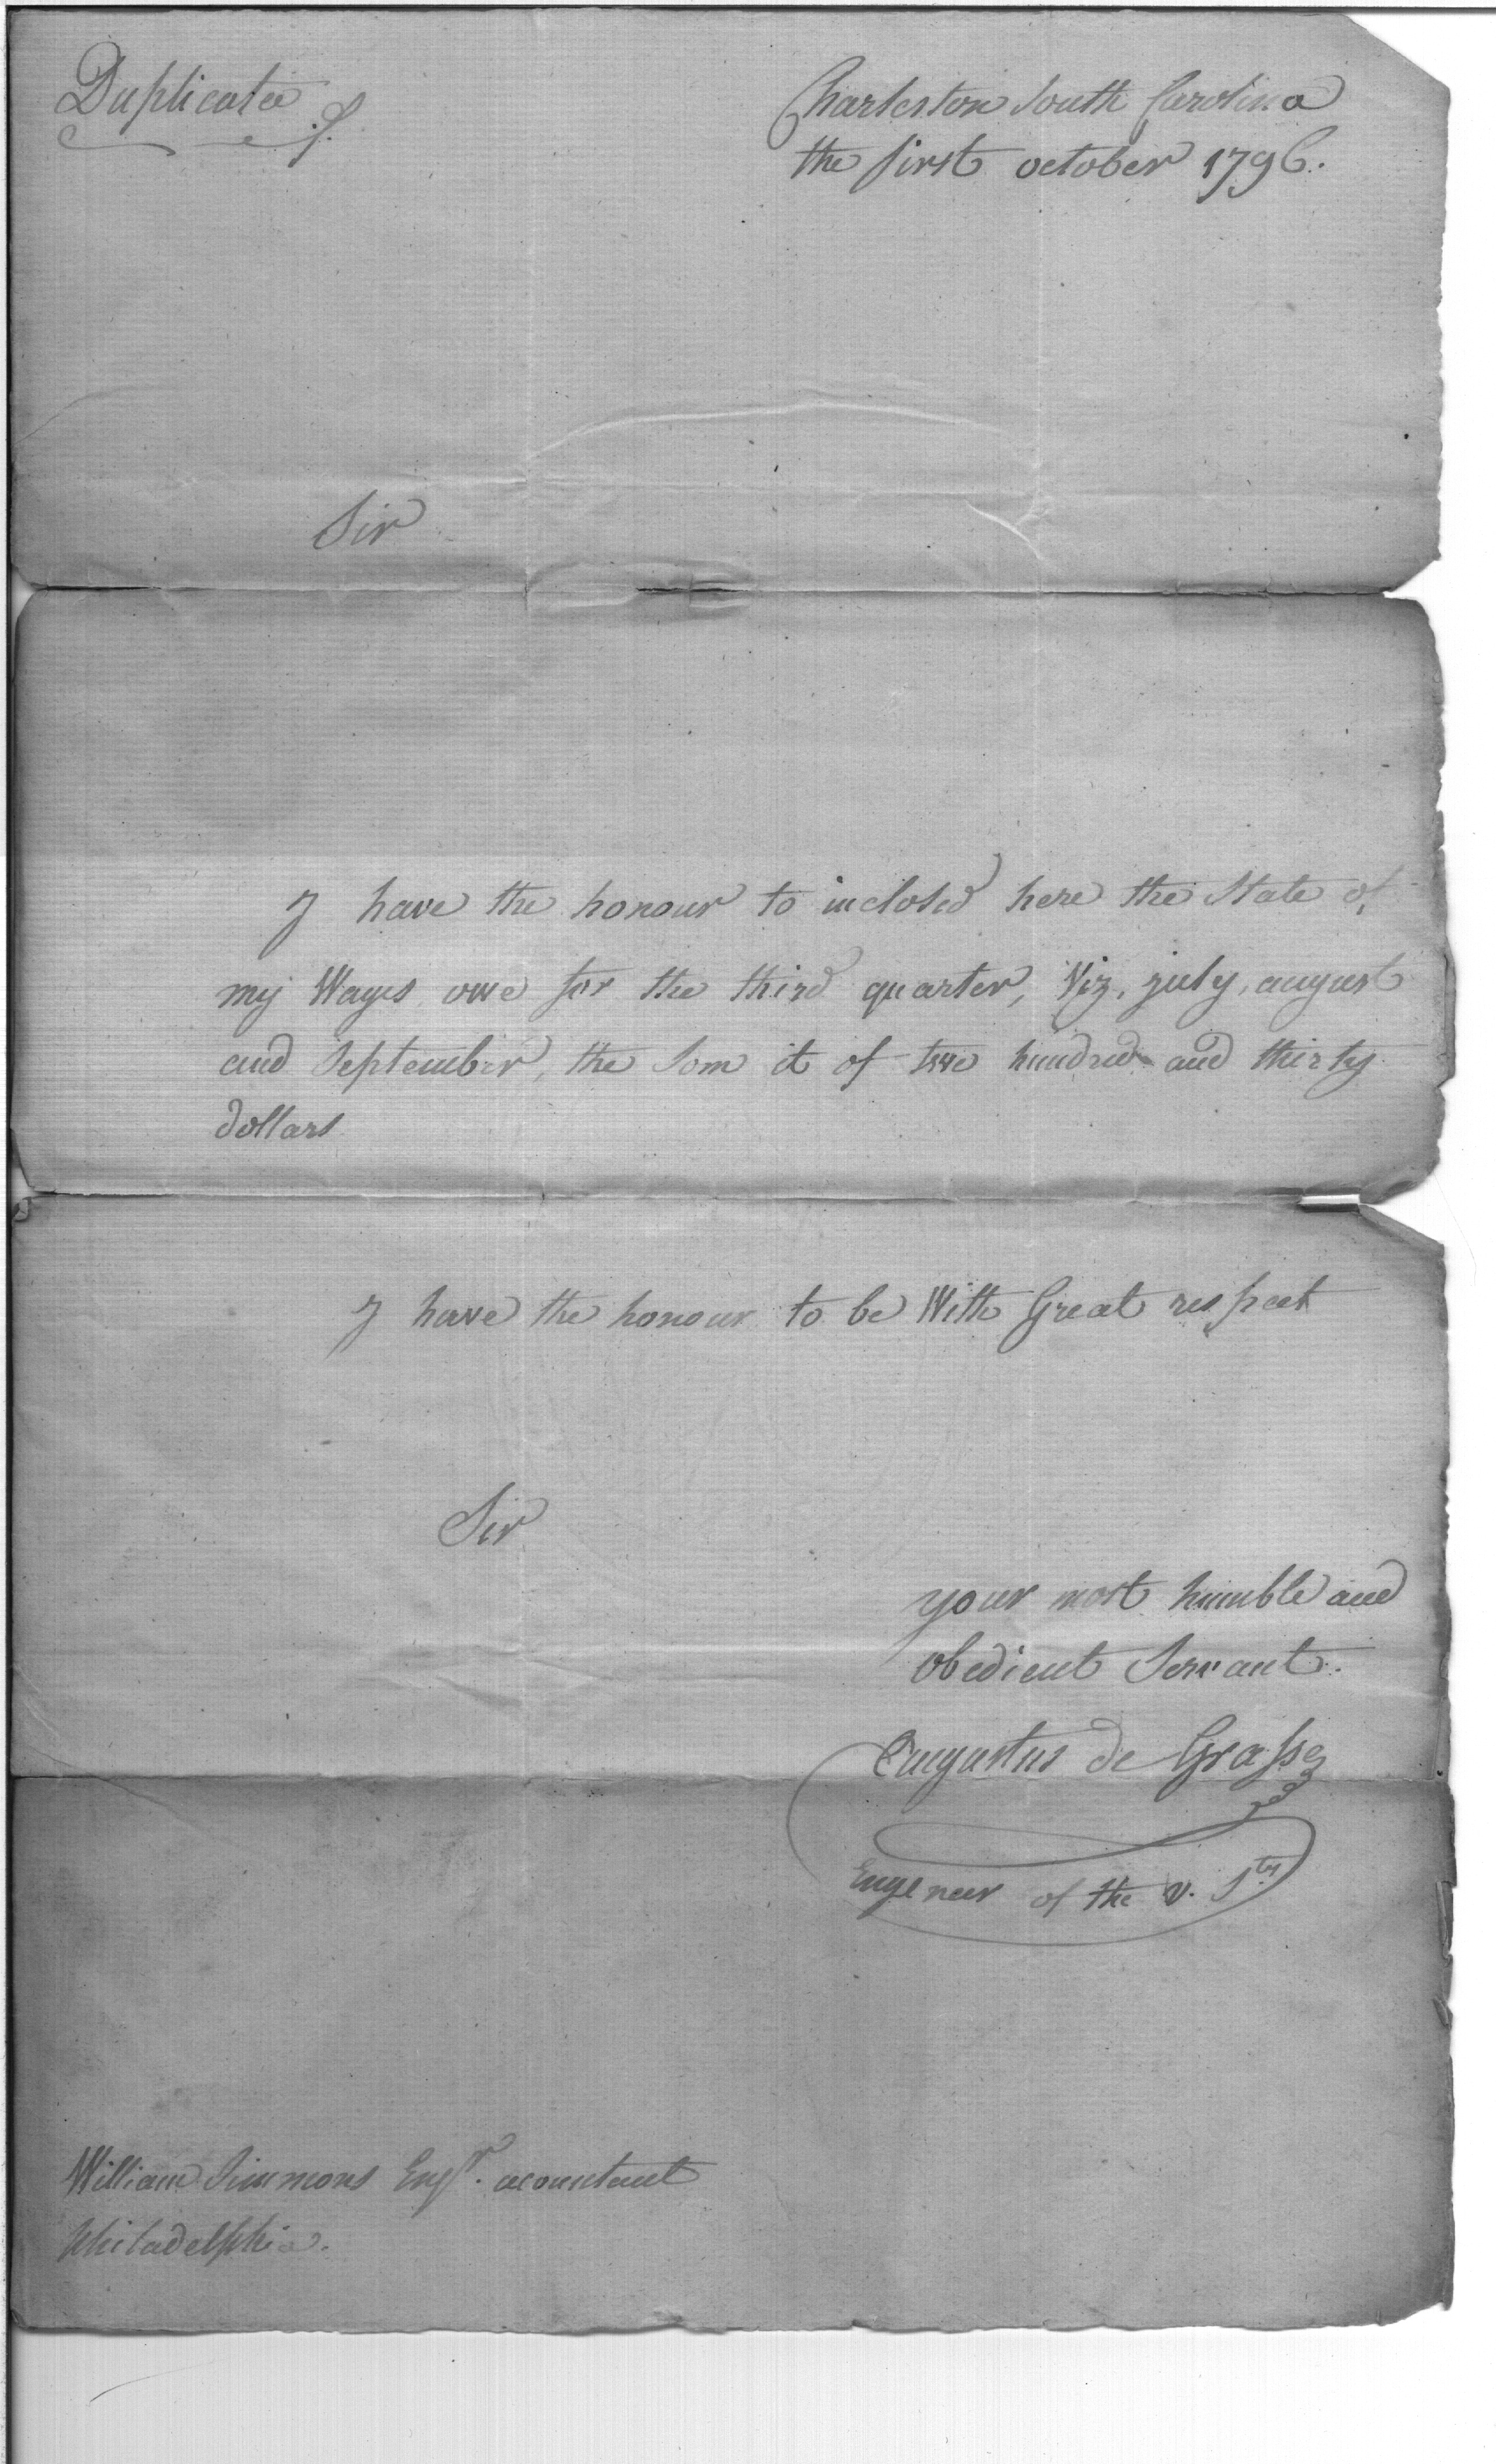 Duplicata
Charleston South Carolina
the first october 1796.
Sir
I have the honour to inclosed here the State of
my Wages owe for the third quarter, Viz, july, august
and September, the Som it of two hundred and thirty
dollars
I have the honour to be With Great respect
Sir
your most humble and
obedient Servant.
Augustus de Grasse
Engeneer of the U. Sts
William Simmons Esqr. acountant
philadelphia.